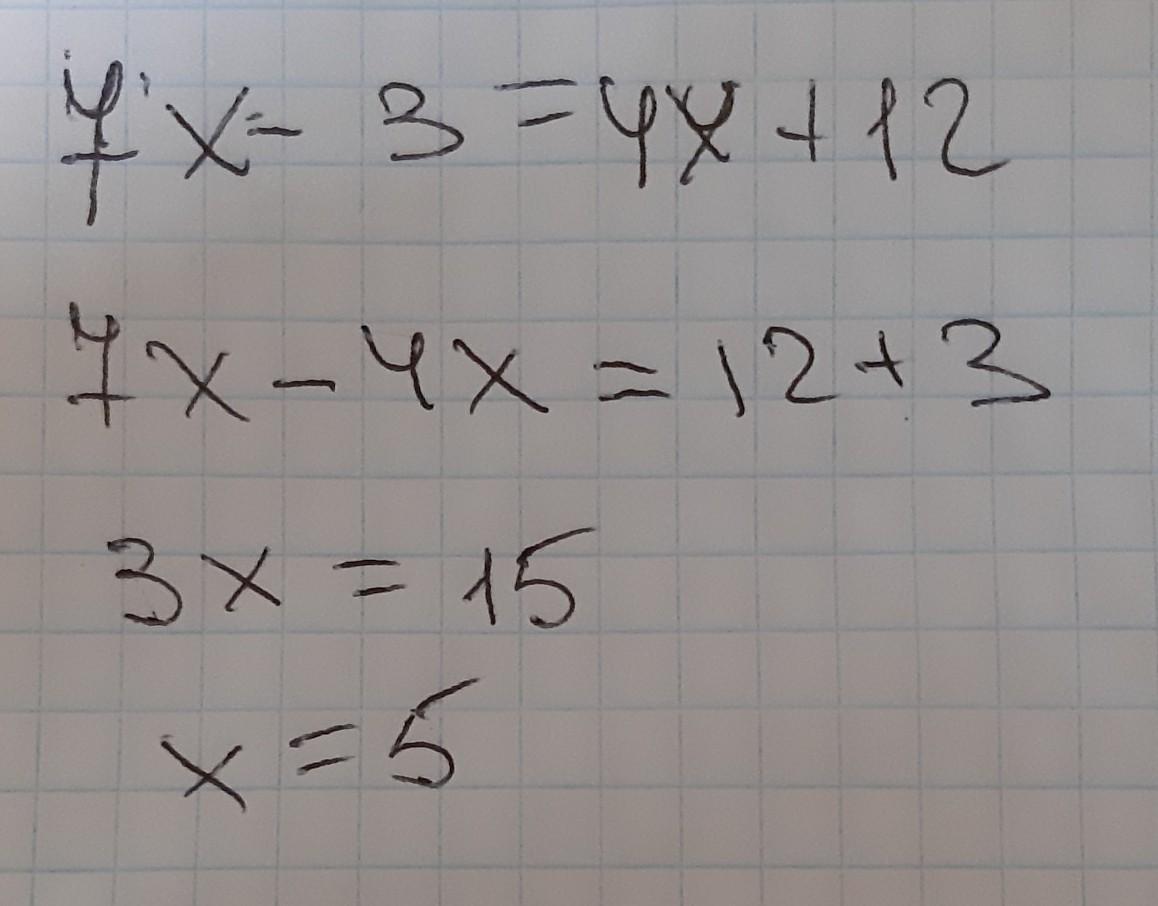 7x - 3 = 4x + 12
7x - 4x = 12 + 3
3x = 15
x = 5